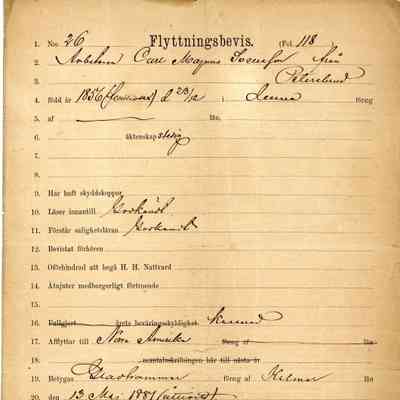 Flyttningsbevis.
1. No. 26 (Fol. 118)
2. Arbetaren Carl Magnus från
3.
4. född år 1856 (femtiosex) d 23/12 i Denna förng
5. af län.
6. äktenskap stedig
7.
8.
9. Har haft skyddskoppor
10. Läser innantill Godkändt
11. Förstår salighetsläran Godkändt
12. Bevistat förhören
13. Oförhindrad att begå H. H. Nattvard
14. Åtnjuter medborgerligt förtroende
15.
16. Fullgjort årets beväringsskyldighet
17. Afflyttar till Norra Amerika förng af län
18. mantalsskrifningen här till nästa år.
19. Betygas Gladhammar förng af Kalmar län
20. den 13 Maj 1881 (